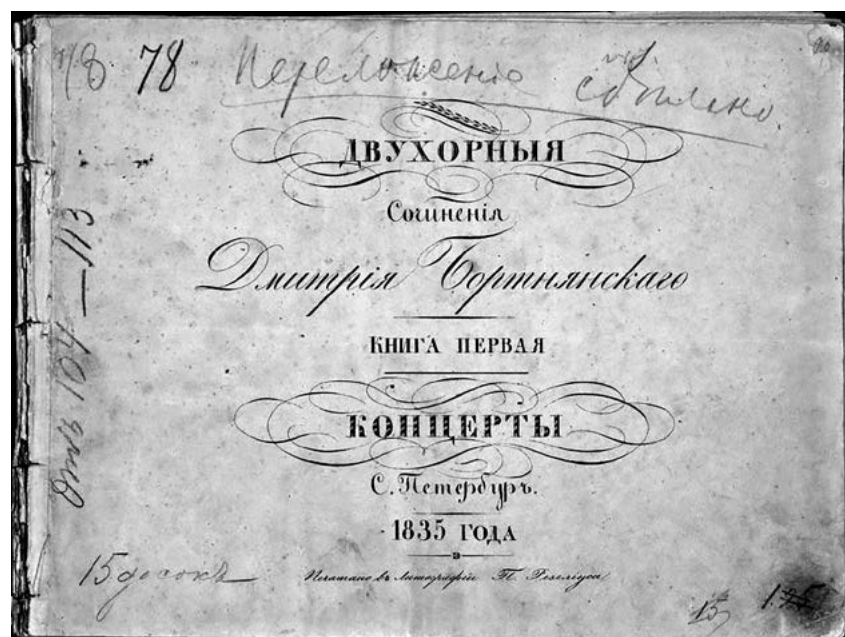 78 78 Переложенія
сдѣлано.
ДВУХОРНЫЯ
Сочиненія
Дмитрія Бортнянскаго
КНИГА ПЕРВАЯ
КОНЦЕРТЫ
С. Петербургъ.
1835 ГОДА
Печатано въ литографіи П.
15 досокъ
15
104 — 113